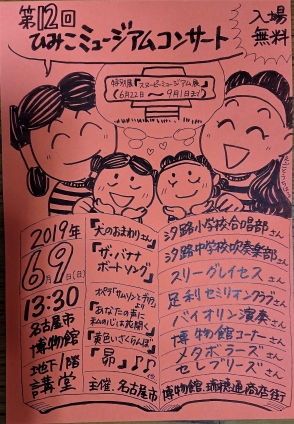 第12回
ひみこミュージアムコンサート
入場
無料
特別展『スヌーピーミュージアム展』
(6月22日〜9月1日まで)
2019年
6月9日(日)
13:30
名古屋市
博物館
地下1階
講堂
『犬のおまわりさん』
『ザ・バナナ
ボートソング』
オペラ「サムソンとデリラ」より
『あなたの声に
私の心は開く』
『黄色いさくらんぼ』
『昴』
他
汐路小学校合唱部さん
汐路中学校吹奏楽部さん
スリーグレイセスさん
足利セミリオンクラブさん
バイオリン演奏さん
博物館コーナーさん
メタボラーズさん
セレブリーズさん
主催.名古屋市博物館.瑞穂通商店街